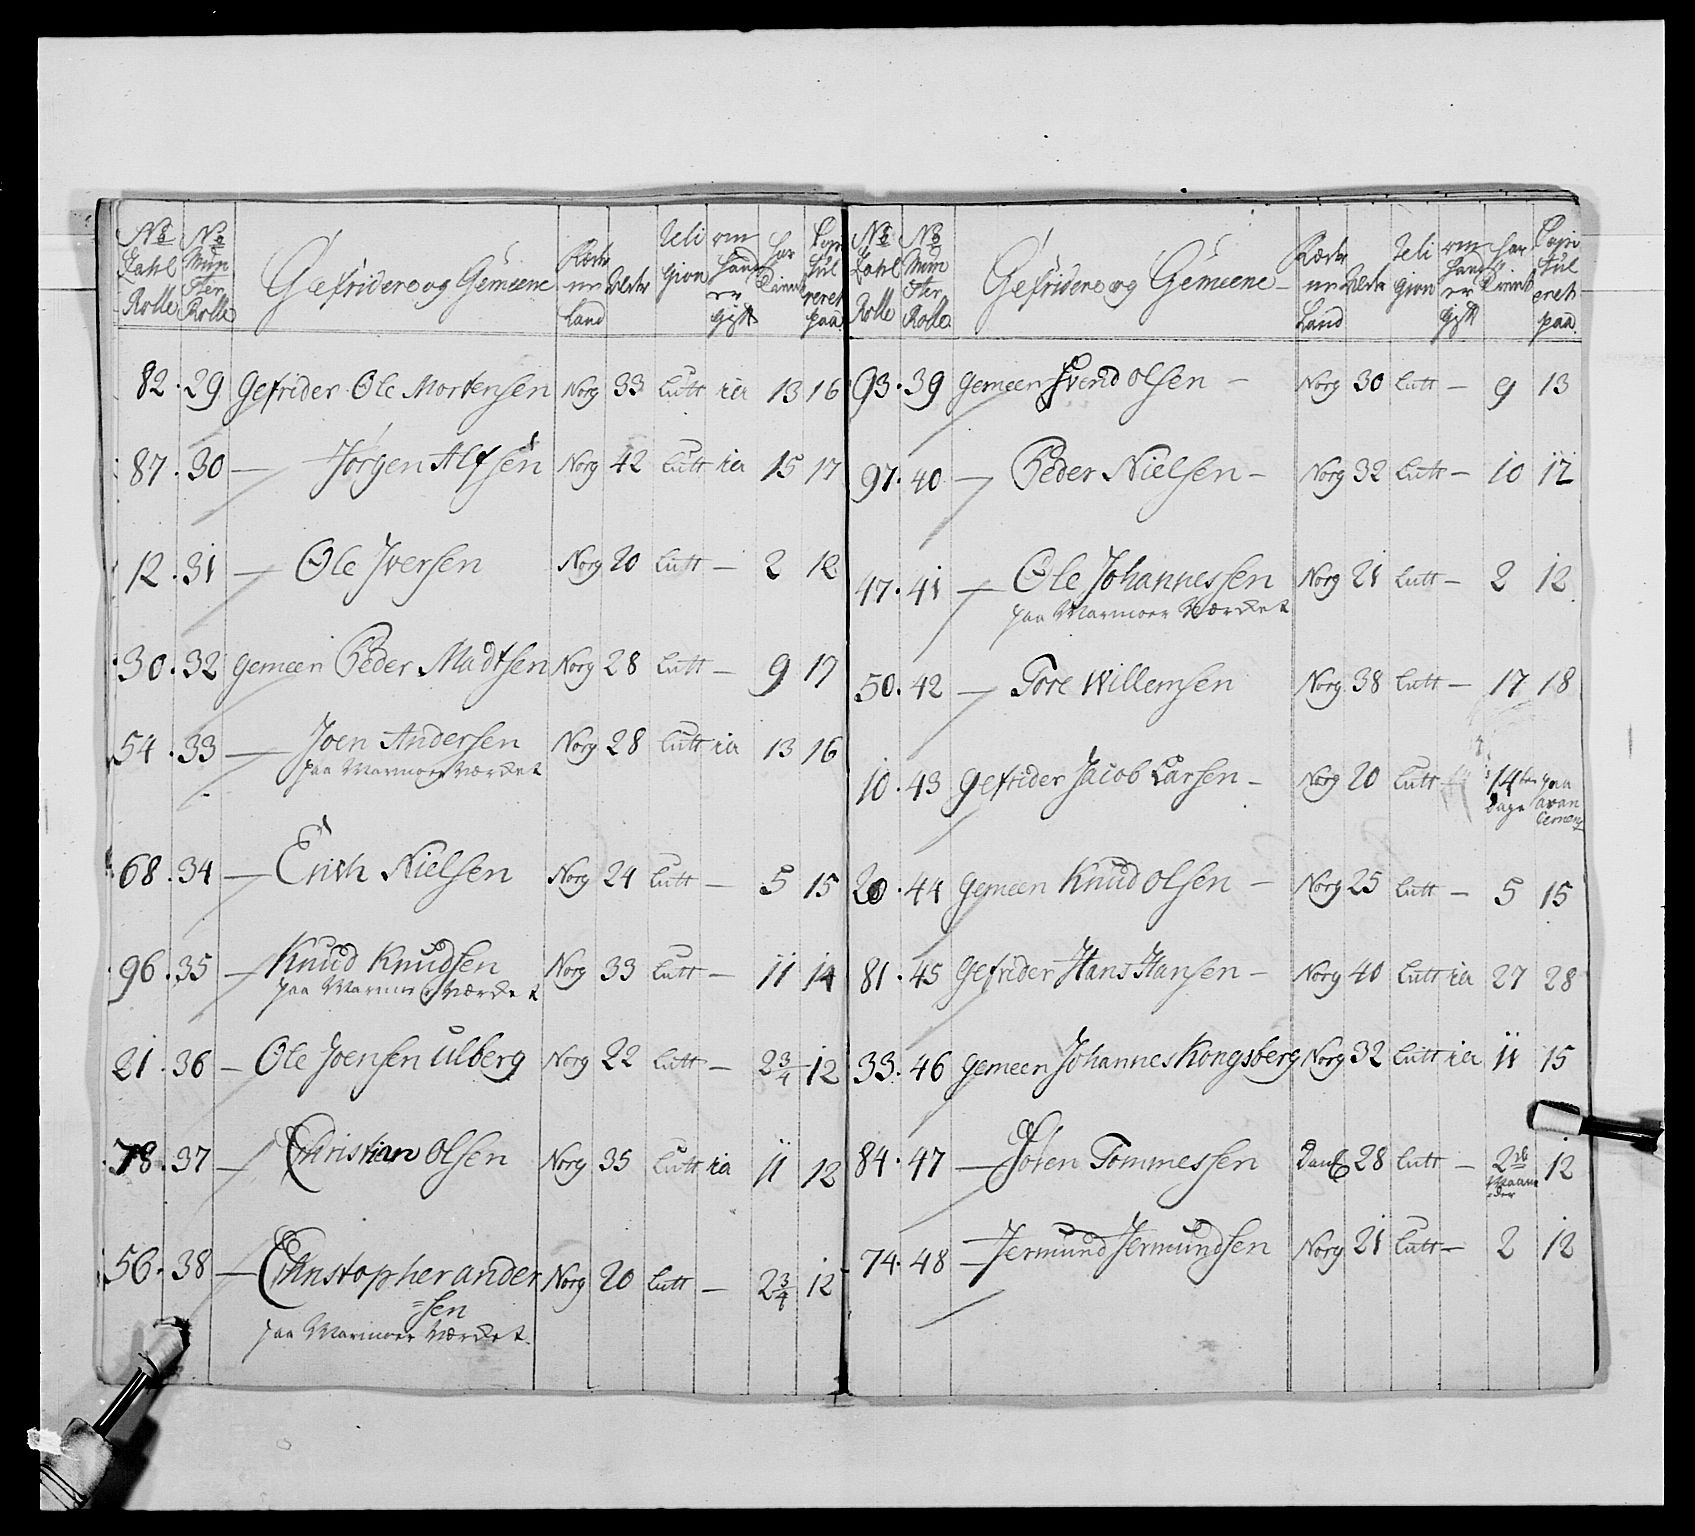 No Zahl Rolle | No Mun ster Rolle | Gefridere og Gemeene | Fædre ne Land | Alder | Reli gion | om hand er gift | har tient | Capi tul reret paa
82. 29 Gefrider Ole Mortensen Norg 33 Lutt ia 13 16
87. 30 — Jørgen Alfsen Norg 42 Lutt ia 15 17
12. 31 — Ole Iversen Norg 20 Lutt — 2 12
30. 32 Gemeen Peder Madtsen Norg 28 Lutt — 9 17
54. 33 — Joen Andersen Norg 28 Lutt ia 13 16
paa Marmoer Værcket
68. 34 — Erich Nielsen Norg 24 Lutt — 5 15
96. 35 — Knud Knudsen Norg 33 Lutt — 11 14
paa Marmoer Værcket
21. 36 — Ole Joensen Ulberg Norg 22 Lutt — 2 3/4 12
78. 37 — Christian Olsen Norg 35 Lutt ia 11 12
56. 38 — Christopher Ander Norg 20 Lutt — 2 3/4 12
=sen
paa Marmoer Værcket.
No Zahl Rolle | No Mun ster Rolle | Gefridere og Gemeene | Fædre ne Land | Alder | Reli gion | om hand er gift | har tient | Capi tul eret paa
93. 39 Gemeen Svend Olsen — Norg 30 Lutt — 9 13
97. 40 — Peder Nielsen — Norg 32 Lutt — 10 12
47. 41 — Ole Johannessen Norg 21 Lutt — 2 12
paa Marmoer Værcket
50. 42 — Tore Willemsen Norg 38 Lutt — 17 18
10. 43 Gefrider Jacob Larsen — Norg 20 Lutt 14 Dage paa avan cement
20. 44 Gemeen Knud Olsen — Norg 25 Lutt — 5 15
81. 45 Gefrider Hans Hansen — Norg 40 Lutt ia 27 28
33. 46 Gemeen Johannes Kongsberg Norg 32 Lutt ia 11 15
84. 47 — Søren Tommessen Danß 28 Lutt — 2 Maane der 12
74. 48 — Jermund Jermundsen Norg 21 Lutt — 2 12